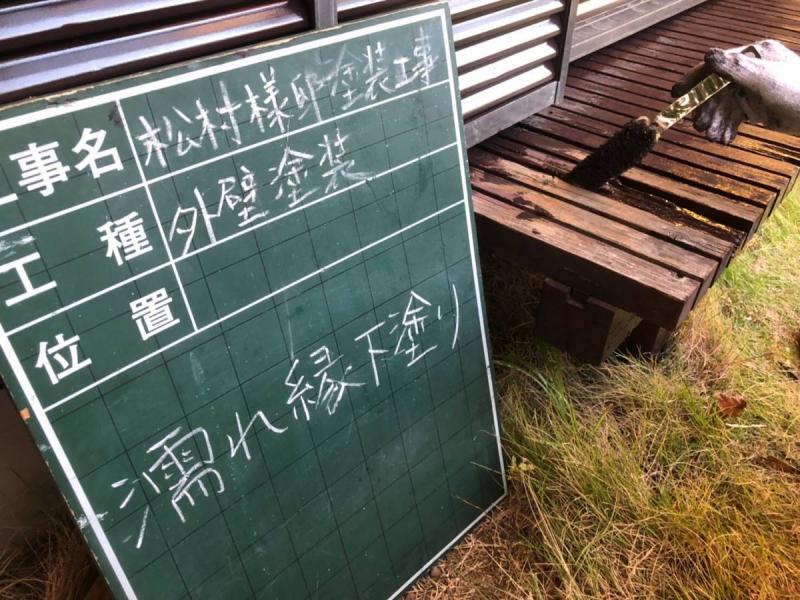 工事名 松村様邸塗装工事
工種 外壁塗装
位置
濡れ縁下塗り